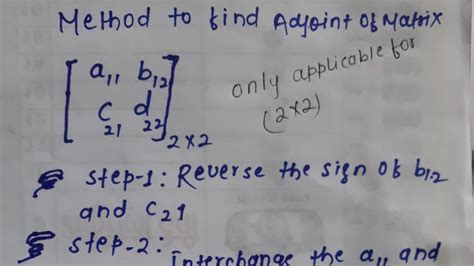 Method to find Adjoint Of Matrix
[a₁₁ b₁₂]
[c₂₁ d₂₂]₂ₓ₂
only applicable for
(2×2)
Step-1: Reverse the sign of b₁₂
and c₂₁
Step-2: Interchange the a₁₁ and